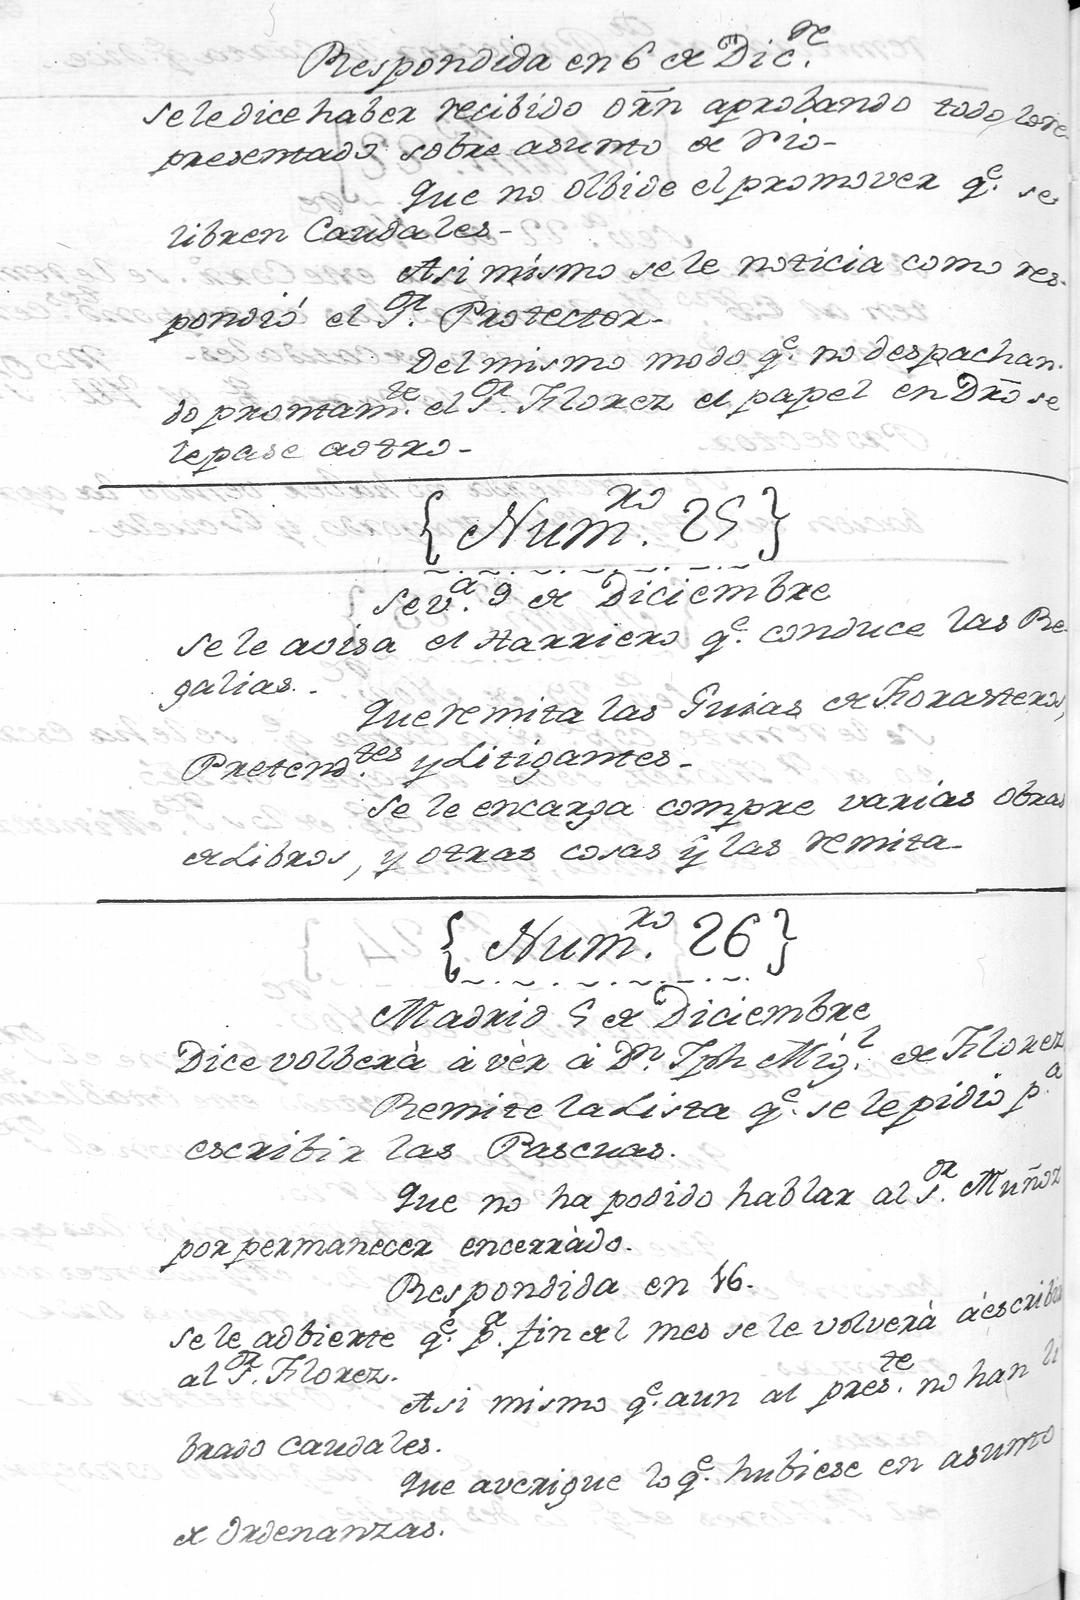 Respondida en 6 de Dic.re
se le dice haber recibido orn aprobando todo lo re
presentado sobre asunto de rio-
Que no olbide el promover q.e se
libren Caudales-
Asi mismo se le noticia como res-
pondió el S.or Protector-
Del mismo modo q.e no despachan-
do prontam.te el S.or Florez el papel en Dro se
le pase a otro-
{ Num.ro 25 }
Sev.a 9 de Diciembre
se le avisa el Harriero q.e conduce las Re-
galias.-
Que remita las Guias de Forasteros,
Pretend.tes y Litigantes-
Se le encarga compre varias obras
de Libros, y otras cosas y las remita-
{ Num.ro 26 }
Madrid 5 de Diciembre
Dice volberà à vèr à Dn. Jph Mig.l de Florez
Remite la Lista q.e se le pidio p.a
escribir las Pascuas.
Que no ha podido hablar al S.or Muñoz
por permanecer encerràdo.
Respondida en 16-
se le adbierte q.e p.a fin del mes se le volverà à escribir
al S.or Florez.
Asi mismo q.e aun al pres.te no han li
brado caudales.
Que averigue lo q.e hubiese en asunto
de Ordenanzas.